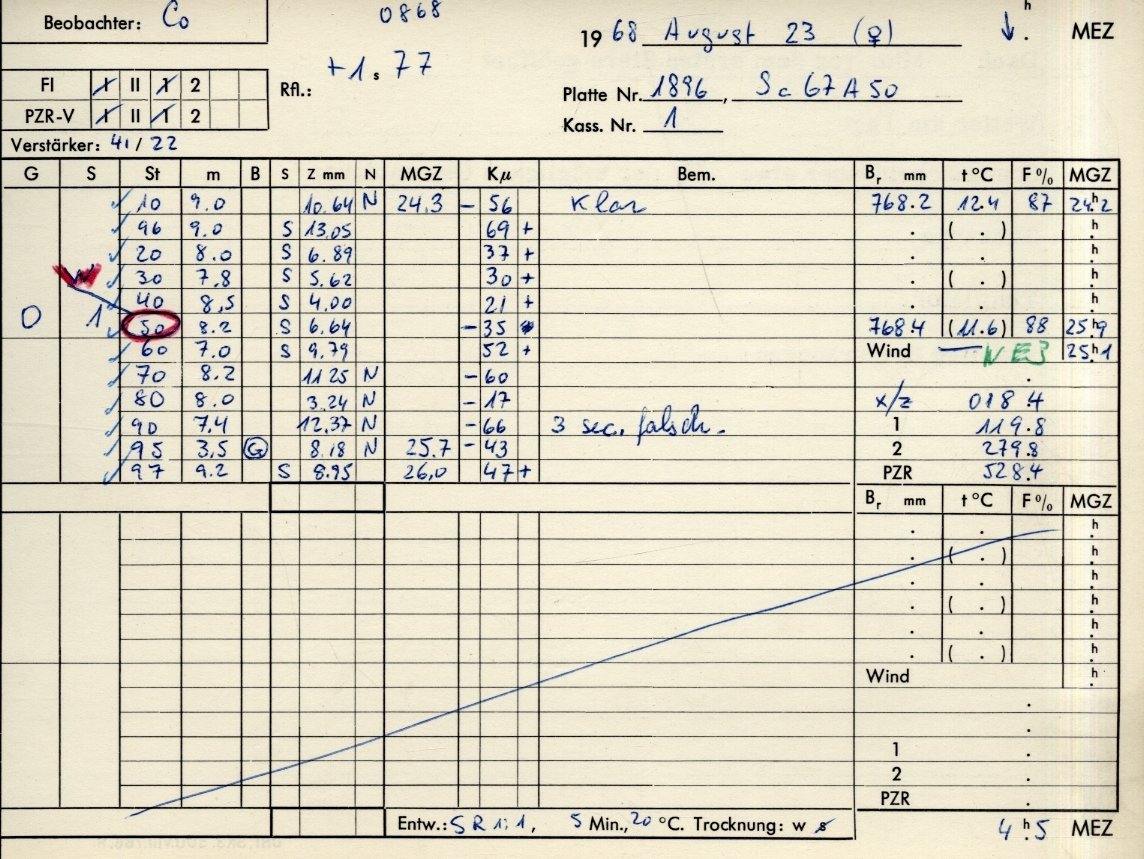 Beobachter: Co 0868 1968 August 23 (♀) ↓ h . MEZ
FI I II 1 2 Rfl.: +1s77 Platte Nr. 1896, Sc 67 A 50
PZR-V I II 1 2 Kass. Nr. 1
Verstärker: 41/22
G S St m B S Z mm N MGZ Kµ Bem. Br mm t °C F % MGZ
10 9.0 10.64 N 24.3 - 56 Klar 768.2 12.4 87 24h2
96 9.0 S 13.05 69 + . ( . ) h .
20 8.0 S 6.89 37 + . . h .
W 30 7.8 S 5.62 30 + . ( . ) h .
40 8.5 S 4.00 21 + . . h .
0 1 50 8.2 S 6.64 - 35 768.4 (11.6) 88 25h9
60 7.0 S 9.79 52 + Wind NE3 25h1
70 8.2 11.25 N - 60 .
80 8.0 3.24 N - 17 x/z 018.4
90 7.4 12.37 N - 66 3 sec. falsch. 1 119.8
95 3.5 G 8.18 N 25.7 - 43 2 279.8
97 9.2 S 8.95 26.0 47 + PZR 528.4
Br mm t °C F % MGZ
. . h .
. ( . ) h .
. . h .
. ( . ) h .
. . h .
. ( . ) h .
Wind h .
.
.
1 .
2 .
PZR .
Entw.: SR 1:1, 5 Min., 20 °C. Trocknung: w s 4h5 MEZ